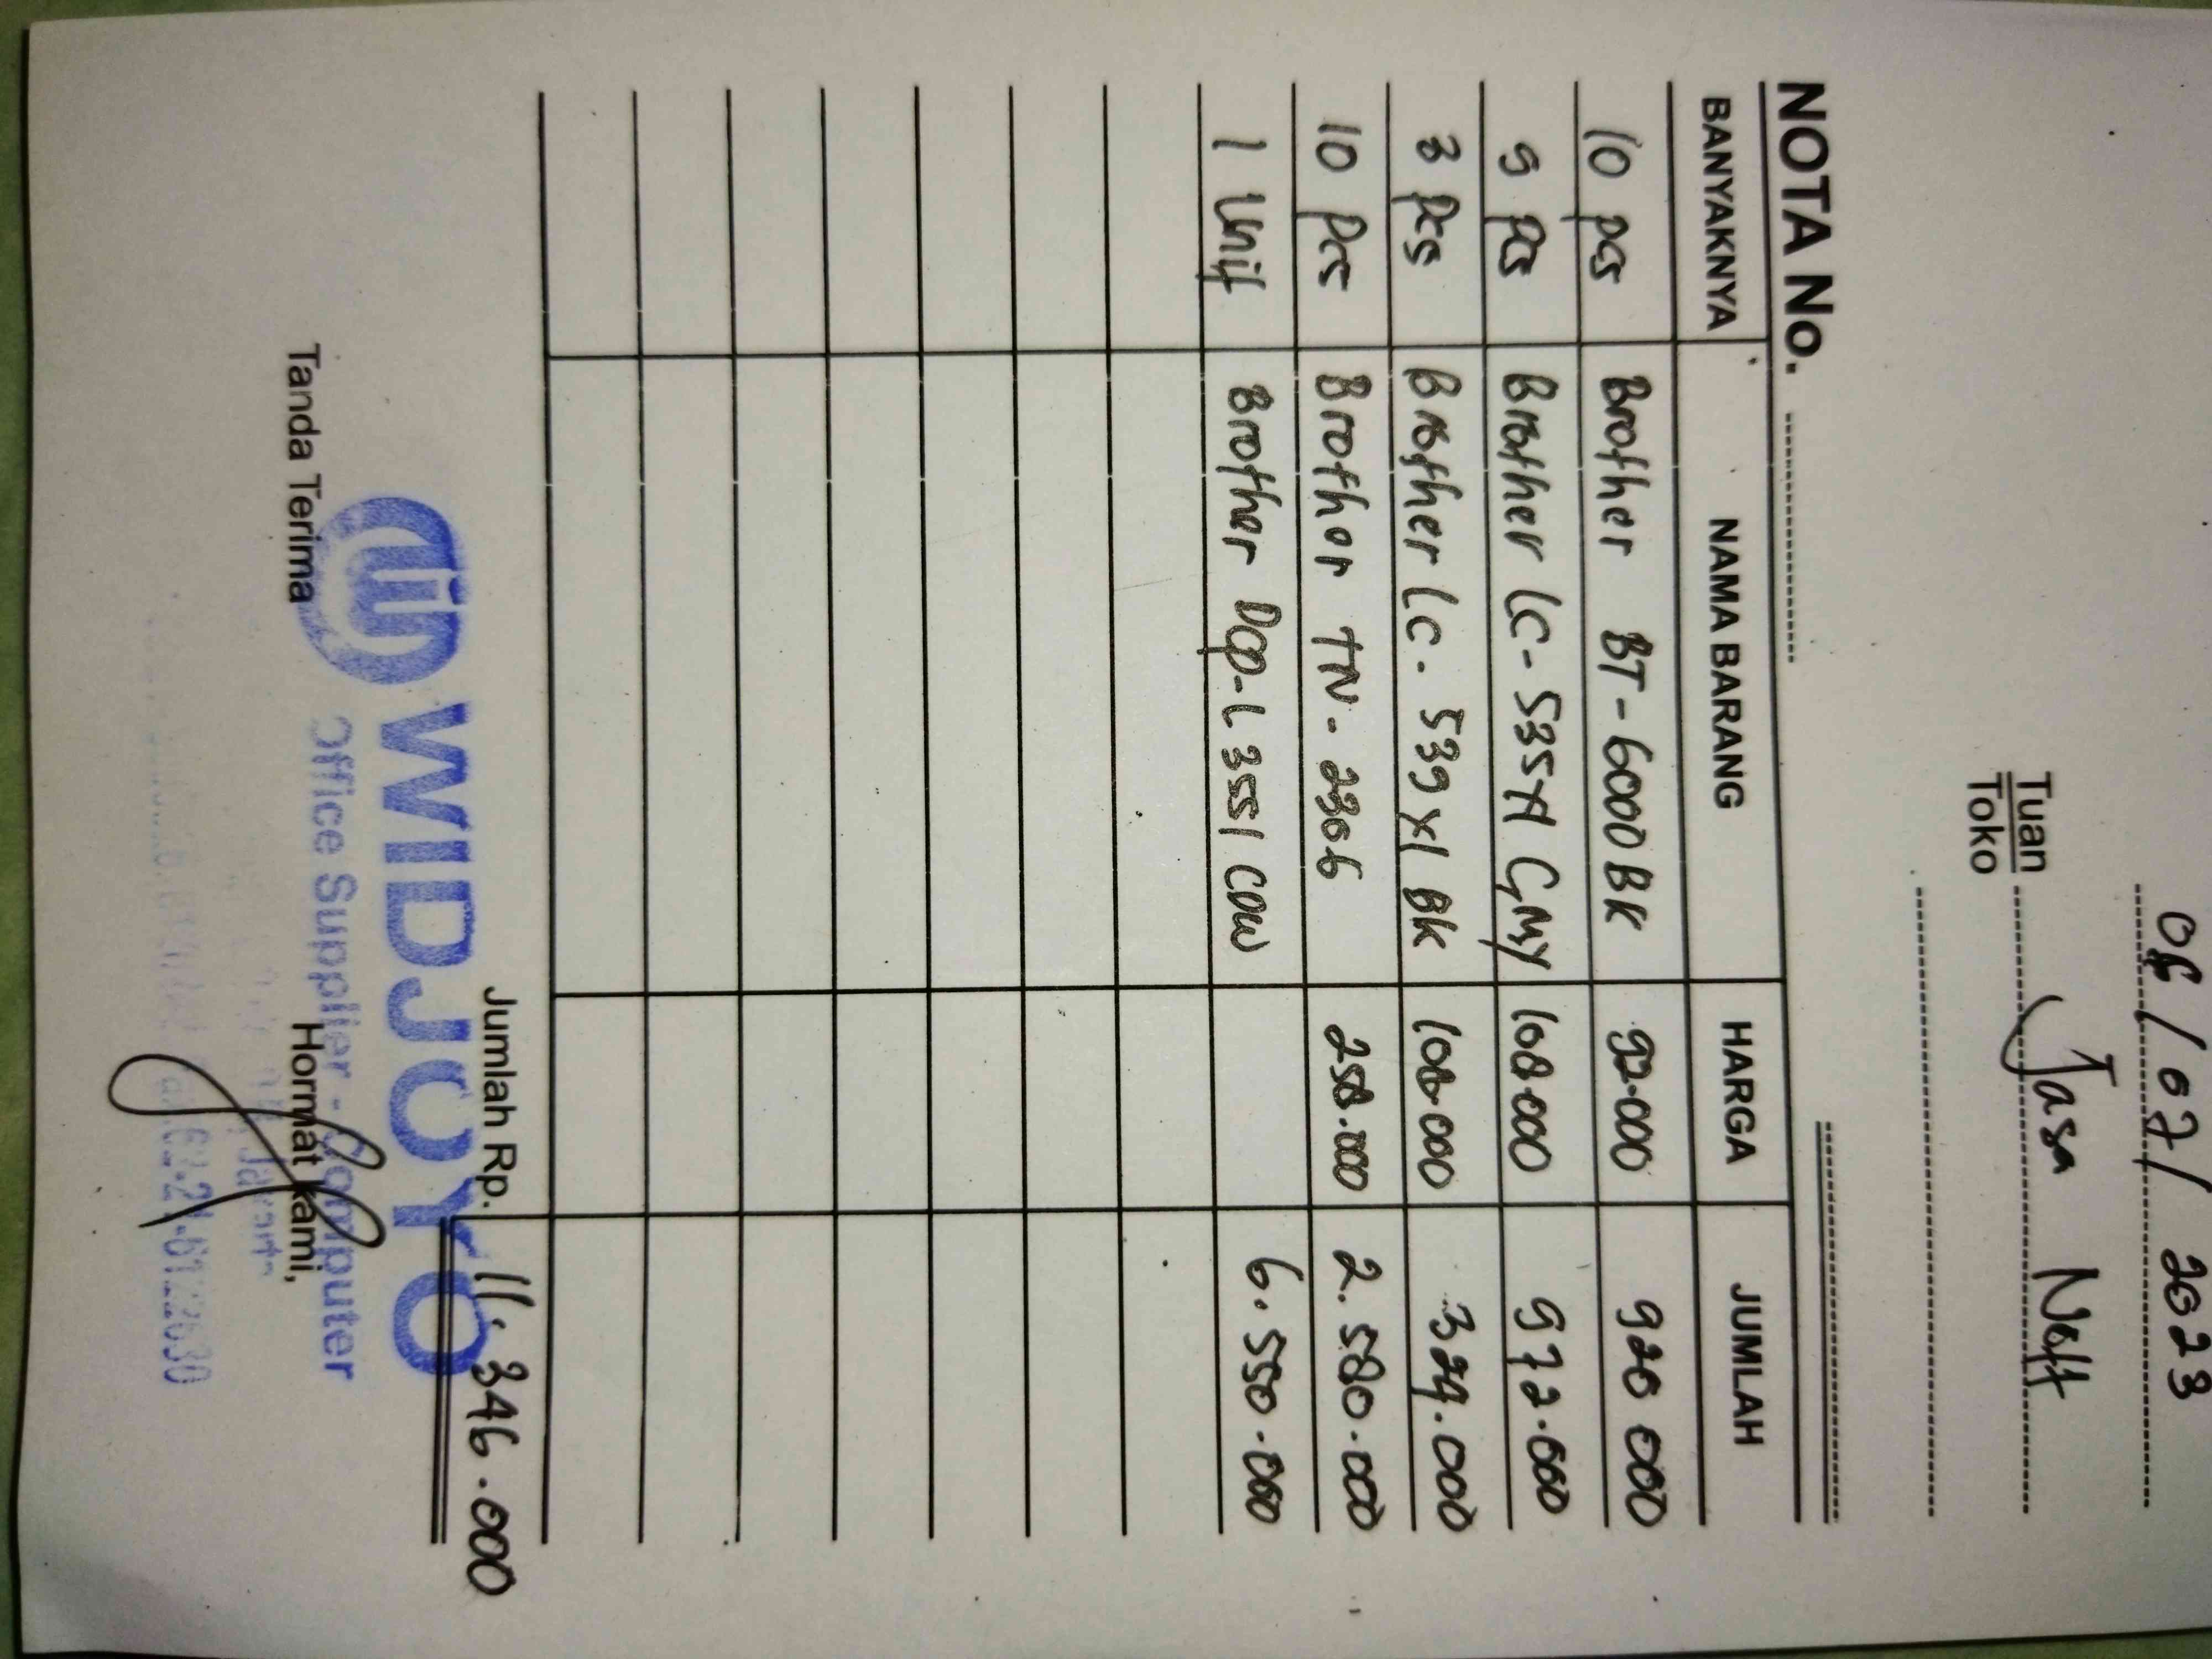 06/07/2023
Tuan Jasa Neff
Toko
NOTA No.
BANYAKNYA NAMA BARANG HARGA JUMLAH
10 pcs Brother BT-6000BK 92.000 920 000
9 Pcs Brother LC-535Xl CMY 108.000 972.000
3 Pcs Brother LC. 539 Xl BK 108.000 324.000
10 Pcs Brother TN-2306 258.000 2.580.000
1 Unit Brother DCP-L3551 CDW 6.550.000
Jumlah Rp. 11.346.000
WIDJOYO
Office Supplier - Computer
Tanda Terima Hormat kami,